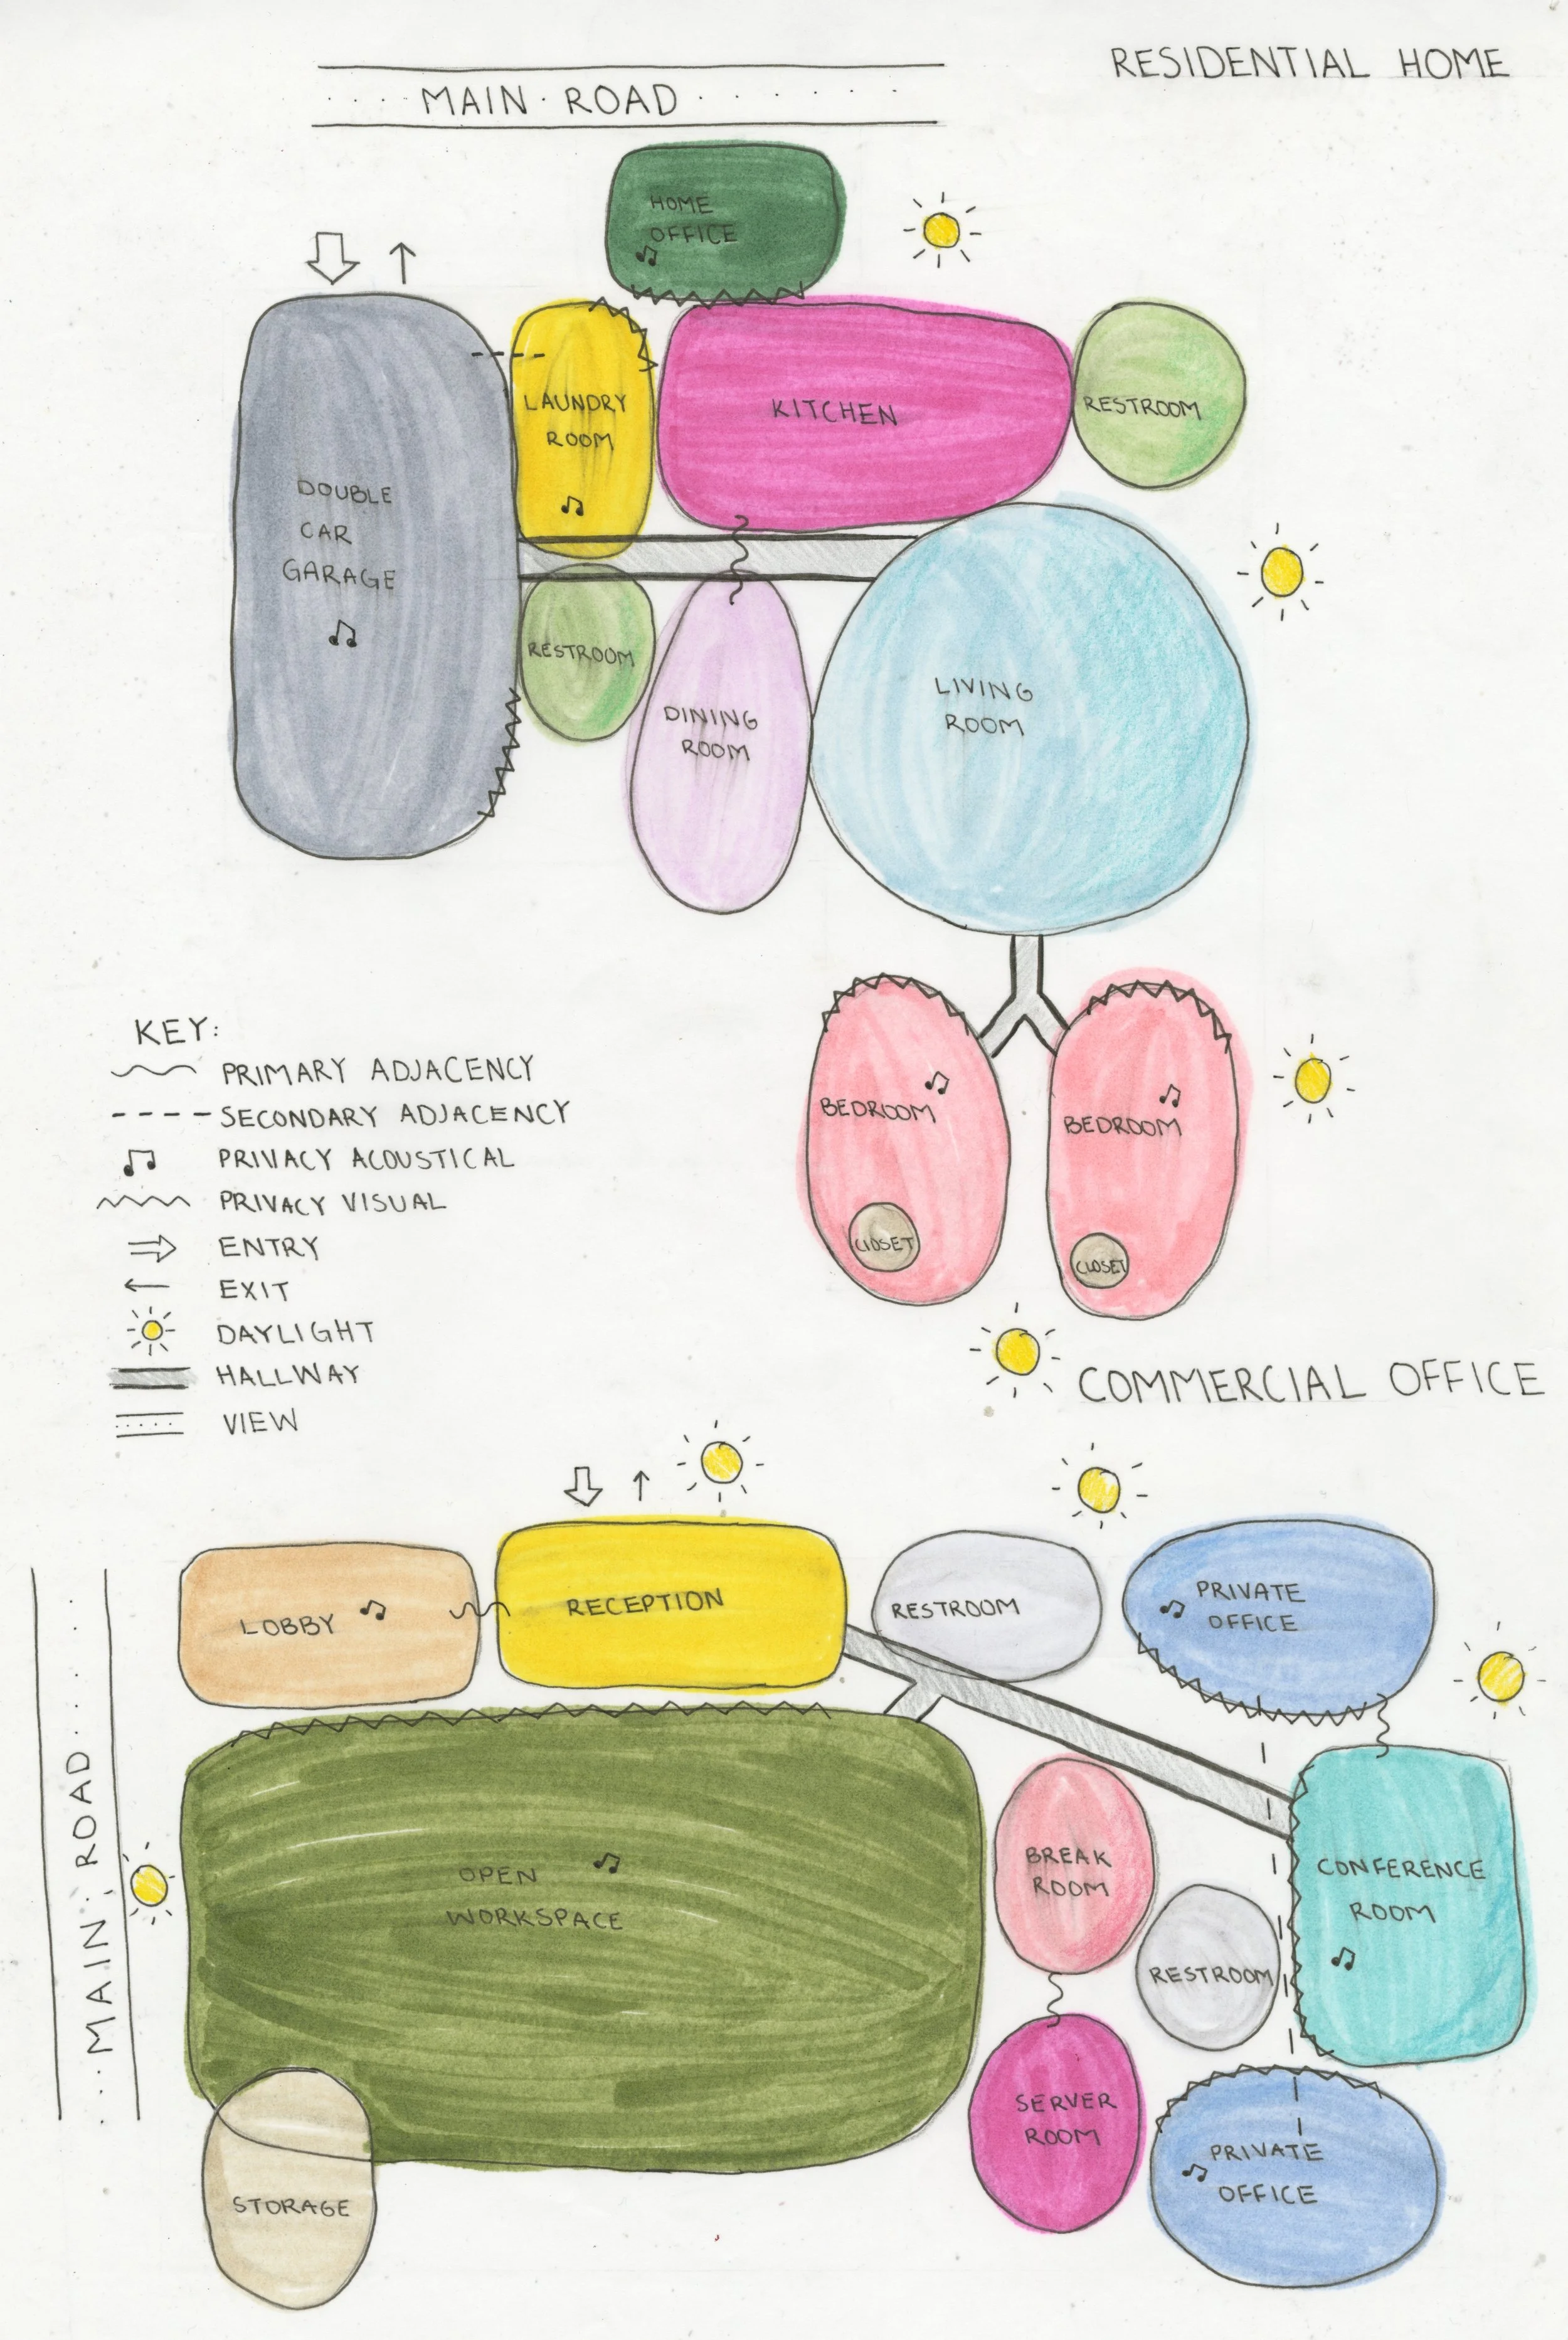 RESIDENTIAL HOME
MAIN ROAD
HOME
OFFICE
LAUNDRY
ROOM
KITCHEN
RESTROOM
DOUBLE
CAR
GARAGE
RESTROOM
DINING
ROOM
LIVING
ROOM
KEY:
PRIMARY ADJACENCY
SECONDARY ADJACENCY
PRIVACY ACOUSTICAL
PRIVACY VISUAL
ENTRY
EXIT
DAYLIGHT
HALLWAY
VIEW
BEDROOM
BEDROOM
CLOSET
CLOSET
COMMERCIAL OFFICE
MAIN ROAD
LOBBY
RECEPTION
RESTROOM
PRIVATE
OFFICE
OPEN
WORKSPACE
BREAK
ROOM
CONFERENCE
ROOM
RESTROOM
SERVER
ROOM
PRIVATE
OFFICE
STORAGE